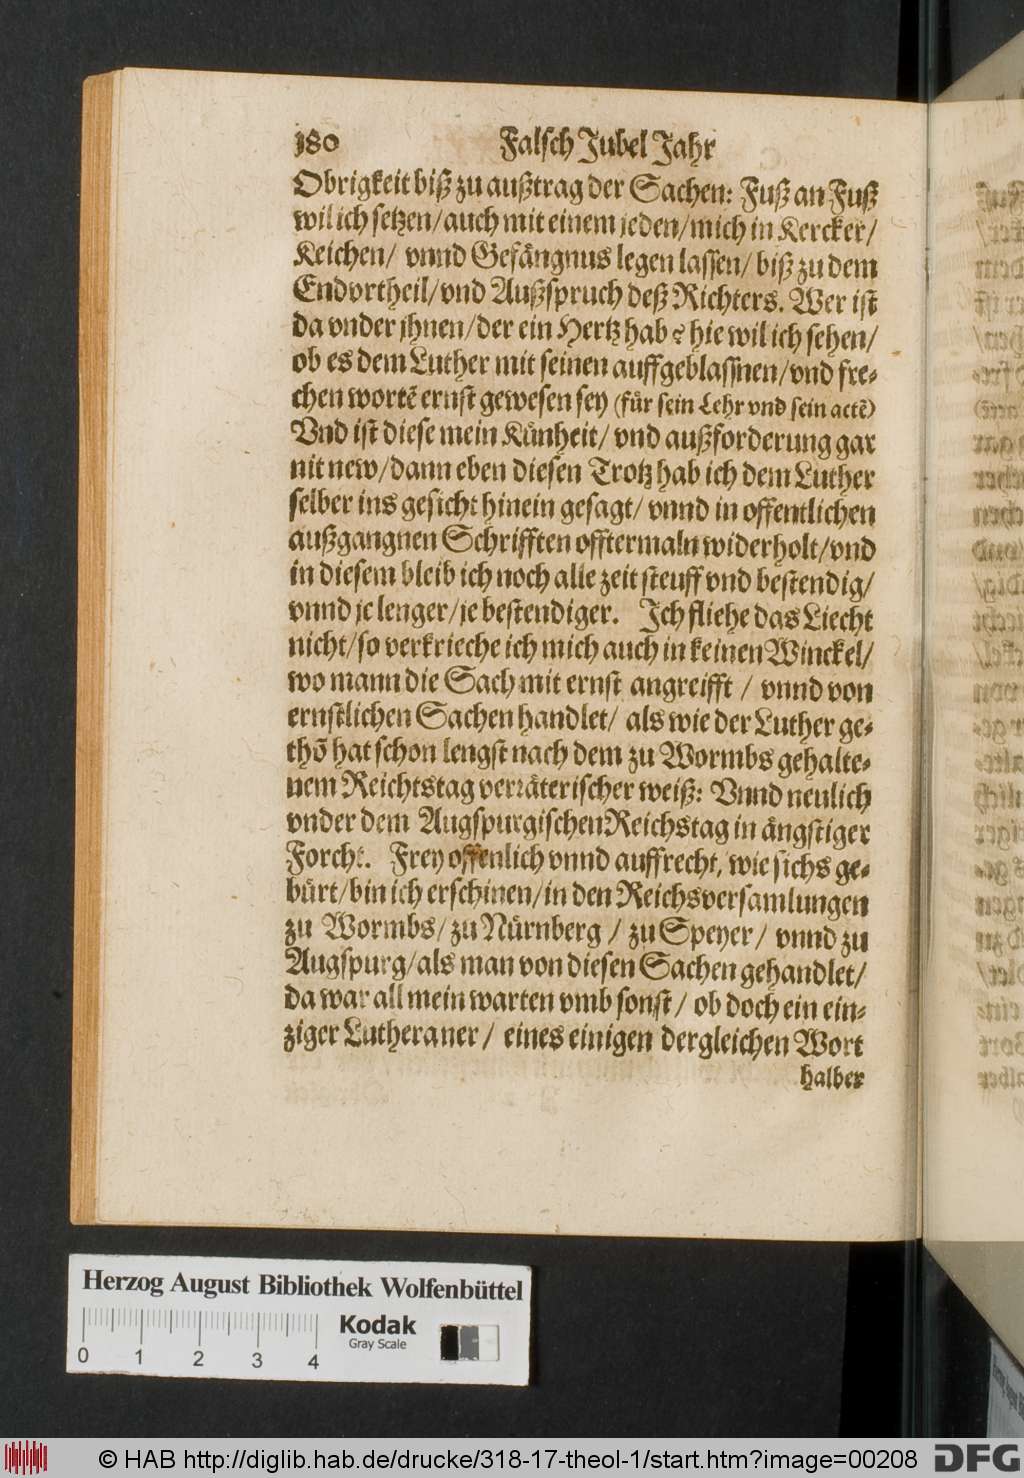 180 Falsch Jubel Jahr
Obrigkeit biß zu außtrag der Sachen: Fuß an Fuß
wil ich setzen/auch mit einem jeden/mich in Kercker/
Keichen/ vnnd Gefängnus legen lassen/ biß zu dem
Endvrtheil/vnd Außspruch deß Richters. Wer ist
da vnder jhnen/der ein Hertz hab? hie wil ich sehen/
ob es dem Luther mit seinen auffgeblassnen/vnd fre-
chen wortẽ ernst gewesen sey (für sein Lehr vnd sein actẽ)
Vnd ist diese mein Künheit/ vnd außforderung gar
nit new/dann eben diesen Trotz hab ich dem Luther
selber ins gesicht hinein gesagt/ vnnd in offentlichen
außgangnen Schrifften offtermaln widerholt/vnd
in diesem bleib ich noch alle zeit steuff vnd bestendig/
vnnd je lenger/je bestendiger. Ich fliehe das Liecht
nicht/so verkrieche ich mich auch in keinen Winckel/
wo mann die Sach mit ernst angreifft / vnnd von
ernstlichen Sachen handlet/ als wie der Luther ge-
thõ hat schon lengst nach dem zu Wormbs gehalte-
nem Reichtstag verräterischer weiß: Vnnd neulich
vnder dem Augspurgischen Reichstag in ängstiger
Forcht. Frey offenlich vnnd auffrecht, wie sichs ge-
bürt/bin ich erschinen/in den Reichsversamlungen
zu Wormbs/zu Nürnberg / zu Speyer/ vnnd zu
Augspurg/als man von diesen Sachen gehandlet/
da war all mein warten vmb sonst/ ob doch ein ein-
ziger Lutheraner/ eines einigen dergleichen Wort
halber
Herzog August Bibliothek Wolfenbüttel
0 1 2 3 4
Kodak
Gray Scale
© HAB http://diglib.hab.de/drucke/318-17-theol-1/start.htm?image=00208
DFG